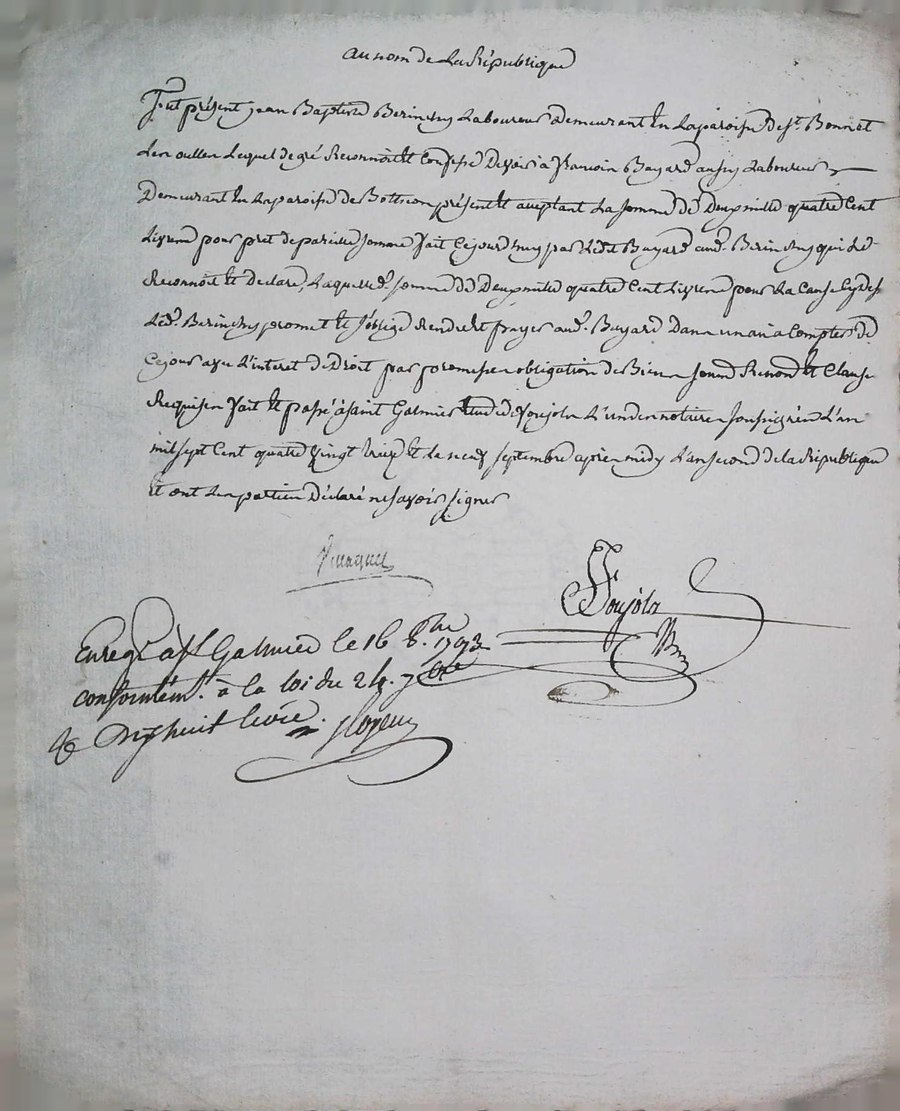 au nom de La République
Fut présent jean Baptiste Berinchy Laboureur demeurant En Laparoisse de st. Bonnet
Les oulles Lequel de gré Reconnoit Et Confesse Devoir à francois Bayard aussy Laboureur
Demeurant En Laparoisse de present Et acceptant La somme de Deux mille quatre Cent
Livres pour pret de pareille somme fait Cejourdhuy par Ledit Bayard aud. Berinchy qui Le
Reconnoit Et Declare, Laquelle d. somme de Deux mille quatre Cent Livres pour La Cause Cydess
Led. Berinchy promet Et s'oblige Rendre Et payer aud. Bayard Dans un an a Compter de
Cejour avec L'interet de Droit par promesse obligation de Biens soumis Renond Et Clauses
Requises fait Et passé à saint Galmier Etude de foujols L'un des notaires soussignés L'an
mil sept Cent quatre vingt treize Et Le neuf septembre apres midy L'an second de la République
Et ont Les parties Déclaré ne savoir signer
foujols
Enregt. à st Galmier le 16 8.bre 1793
conformém.t à la loi du 24. 7bre
Dix huit livres.